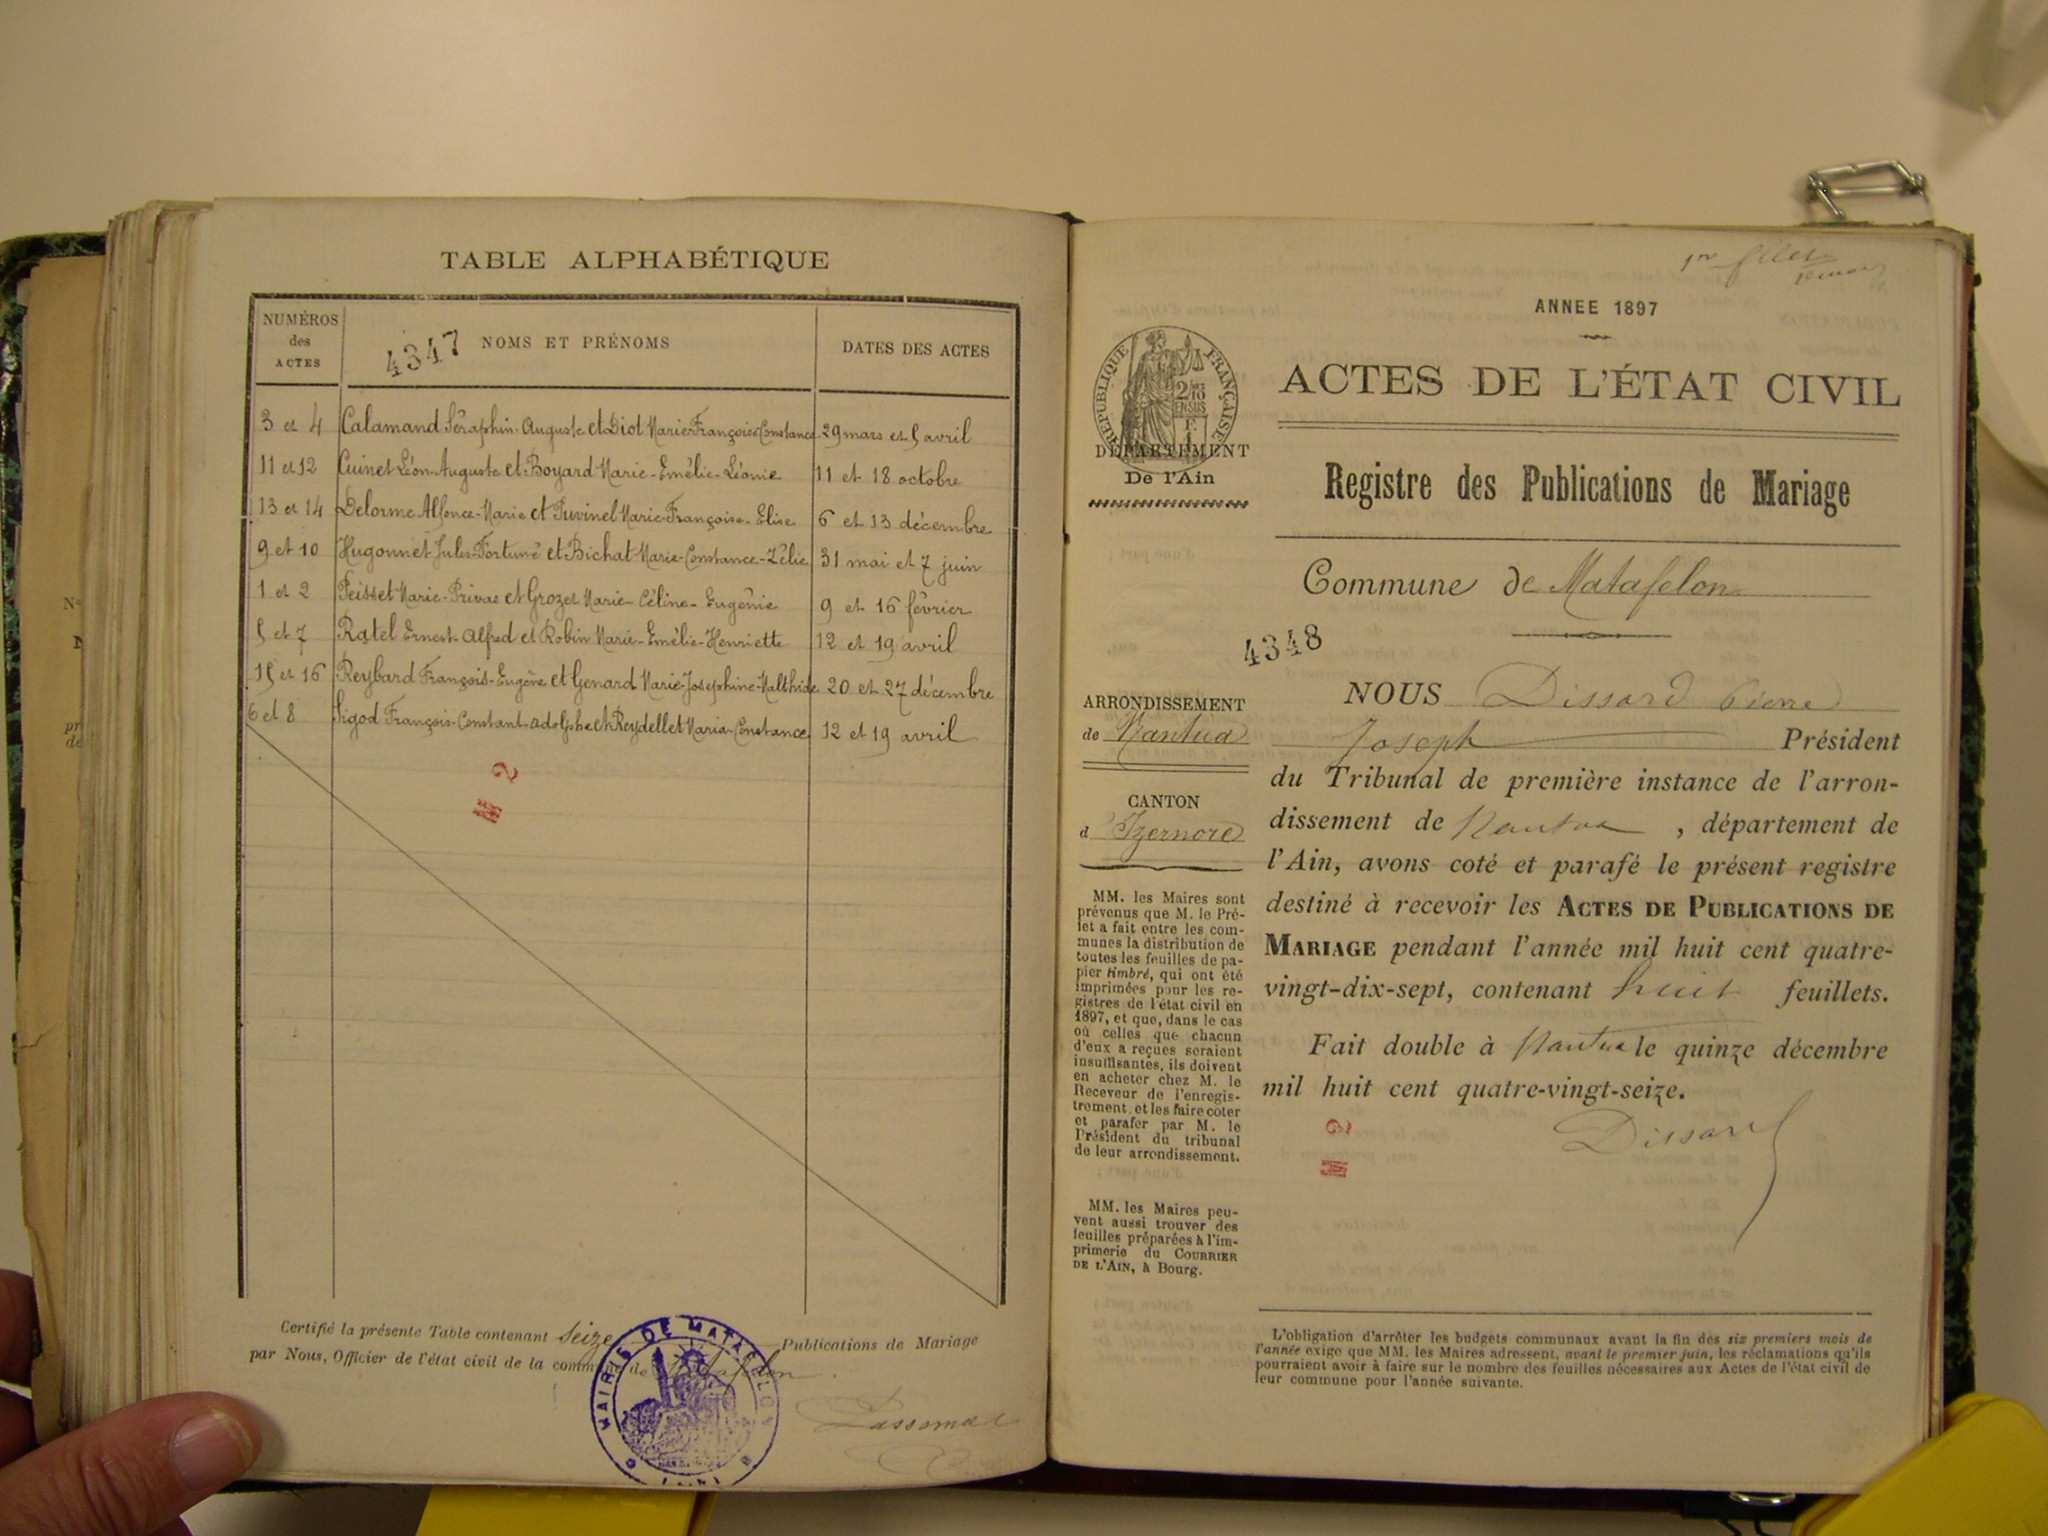 TABLE ALPHABÉTIQUE
NUMÉROS des ACTES
NOMS ET PRÉNOMS
DATES DES ACTES
4347
3 et 4 Calamand Séraphin-Auguste et Diot Marie-Françoise-Constance 29 mars et 5 avril
11 et 12 Cuinet Léon-Auguste et Boyard Marie-Emélie-Léonie 11 et 18 octobre
13 et 14 Delorme Alfonce-Marie et Juvinel Marie-Françoise-Elise 6 et 13 décembre
9 et 10 Hugonnet Jules-Fortuné et Bichat Marie-Constance-Zélie 31 mai et 7 juin
1 et 2 Peisset Marie-Privas et Grozet Marie-Céline-Eugénie 9 et 16 février
5 et 7 Ratel Ernest-Alfred et Robin Marie-Emélie-Henriette 12 et 19 avril
15 et 16 Reybard François-Eugène et Genard Marie-Josephine-Malthide 20 et 27 décembre
6 et 8 Sigod François-Constant-adolphe et Reydellet Maria-Constance 12 et 19 avril
M 2
Certifié la présente Table contenant Seize Publications de Mariage
par Nous, Officier de l'état civil de la commune de Matafelon
MAIRIE DE MATAFELON
(AIN)
ANNEE 1897
RÉPUBLIQUE FRANÇAISE
2/10 EN SUS
ACTES DE L'ÉTAT CIVIL
DÉPARTEMENT
De l'Ain
Registre des Publications de Mariage
Commune de Matafelon
4348
ARRONDISSEMENT
de Nantua
CANTON
d'Izernore
MM. les Maires sont
prévenus que M. le Pré-
fet a fait entre les com-
munes la distribution de
toutes les feuilles de pa-
pier timbré, qui ont été
imprimées pour les re-
gistres de l'état civil en
1897, et que, dans le cas
où celles que chacun
d'eux a reçues seraient
insuffisantes, ils doivent
en acheter chez M. le
Receveur de l'enregis-
trement et les faire coter
et parafer par M. le
Président du tribunal
de leur arrondissement.
MM. les Maires peu-
vent aussi trouver des
feuilles préparées à l'im-
primerie du COURRIER
DE L'AIN, à Bourg.
NOUS Dissard Pierre
Joseph Président
du Tribunal de première instance de l'arron-
dissement de Nantua, département de
l'Ain, avons coté et parafé le présent registre
destiné à recevoir les ACTES DE PUBLICATIONS DE
MARIAGE pendant l'année mil huit cent quatre-
vingt-dix-sept, contenant huit feuillets.
Fait double à Nantua le quinze décembre
mil huit cent quatre-vingt-seize.
Dissard
M 2
L'obligation d'arrêter les budgets communaux avant la fin des six premiers mois de
l'année exige que MM. les Maires adressent, avant le premier juin, les réclamations qu'ils
pourraient avoir à faire sur le nombre des feuilles nécessaires aux Actes de l'état civil de
leur commune pour l'année suivante.